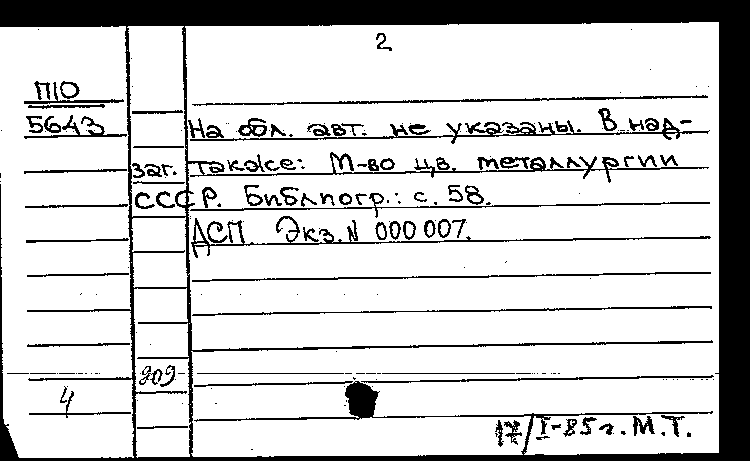 2
П10
5643
На обл. авт. не указаны. В над-
заг. также: М-во цв. металлургии
СССР. Библиогр.: с. 58.
ДСП Экз. N 000 007.
909
4
17/I-85 г. М.Т.